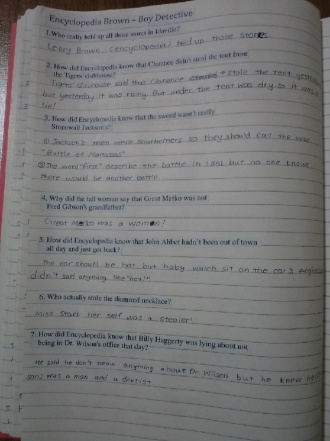 Encyclopedia Brown - Boy Detective
1. Who really held up all those stores in Idaville?
Leroy Brown (encyclopedia) held up those stores
2. How did Encyclopedia know that Clarence didn't steal the tent from
the Tigers' clubhouse?
Tigers' said that Clarence stole the tent yesterday
but yesterday it was rainy. But under the tent was dry. so it was a
lie!
3. How did Encyclopedia know that the sword wasn't really
Stonewall Jackson's?
① Jackson's men were southerners so they should call the
"Battle of Manassas"
② The word "first" describe the battle in 1861 but no one knows
there would be another battle
4. Why did the tall woman say that Great Merko was not
Fred Gibson's grandfather?
Great Merko was a woman!
5. How did Encyclopedia know that John Abber hadn't been out of town
all day and just got back?
The car should be hot but baby which sit on the car's engine
didn't say anything like "hot!"
6. Who actually stole the diamond necklace?
Miss Stark her self was a stealer!
7. How did Encyclopedia know that Billy Haggerty was lying about not
being in Dr. Wilson's office that day?
He said he don't anything about Dr. Wilson but he knew
was a man and a dentist